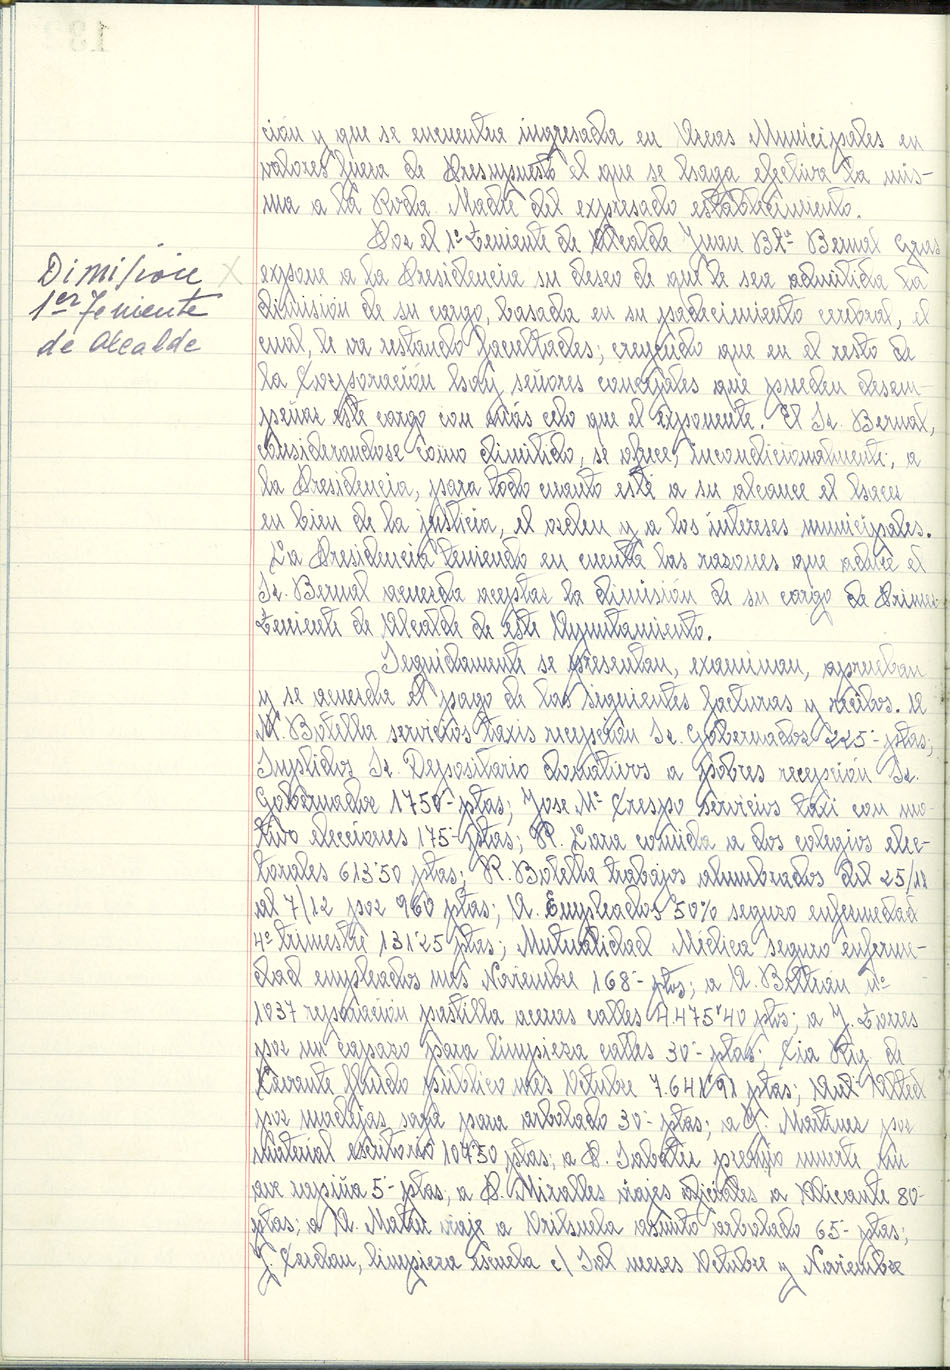 ción y que se encuentra ingresada en Arcas Municipales en
valores fuera de Presupuesto el que se haga efectiva la mis-
ma a la Rvda. Madre del expresado establecimiento.
Por el 1º teniente de Alcalde Juan Btª Bernal Gras
Dimisión
1er Teniente
de Alcalde
expone a la Presidencia su deseo de que le sea admitida la
dimisión de su cargo, basada en su padecimiento cerebral, el
cual, le va restando facultades; creyendo que en el resto de
la Corporación hay señores concejales que pueden desem-
peñar este cargo con más celo que el exponente. El Sr. Bernal,
considerandose como dimitido, se ofrece, incondicionalmente, a
la Presidencia, para todo cuanto esté a su alcance el hacer
en bien de la justicia, el orden y a los intereses municipales.
La Presidencia teniendo en cuenta las razones que aduce el
Sr. Bernal acuerda aceptar la dimisión de su cargo de Primer
teniente de Alcalde de éste Ayuntamiento.
Seguidamente se presentan, examinan, aprueban
y se acuerda el pago de las siguientes facturas y recibos. A
M. Botella servicios taxis recepción Sr. Gobernador 225'- ptas;
Suplidos Sr. Depositario donativos a pobres recepción Sr.
Gobernador 1750'- ptas; Jose Mª Crespo servicios taxi con mo-
tivo elecciones 175'- ptas; R. Lara comida a dos colegios elec-
torales 613'50 ptas; R. Botella trabajos alumbrados del 25/11
al 7/12 por 960 ptas; A. Empleados 50% seguro enfermedad
4º trimestre 131'25 ptas; Mutualidad Médica seguro enferme-
dad empleados mes Noviembre 168'- ptas; a A. Beltrán nº
1037 reparación pastilla aceras calles 4.475'40 ptas; a J. Torres
por un capazo para limpieza calles 30'- ptas; Cia Rig. de
Levante fluido público mes Octubre 7.641'91 ptas;
por madejas para arbolado 30'- ptas; a J. Martinez por
material escritorio 107'50 ptas; a S. Sabater premio muerte un
ave rapiña 5'- ptas; a S. Miralles viajes oficiales a Alicante 80'-
ptas; a A. Mateu viaje a Orihuela asunto arbolado 65'- ptas;
J. limpieza escuela c/ Sol meses Octubre y Noviembre